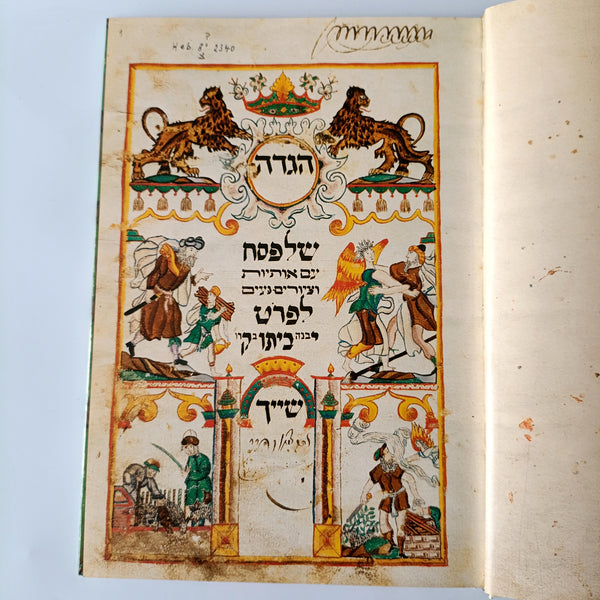 Heb. 8° 2340
הגדה
של פסח
עם אותיות
וציורים נאים
לפרט
יבנה ביתו בקרו
שייך